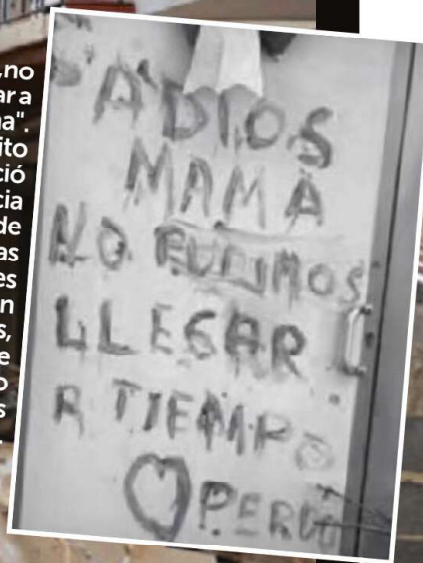 ,no
ar a
na".
ito
ció
cia
de
as
es
n
s,
e
o
s
.
ADIOS
MAMA
NO PUDIMOS
LLEGAR
A TIEMPO